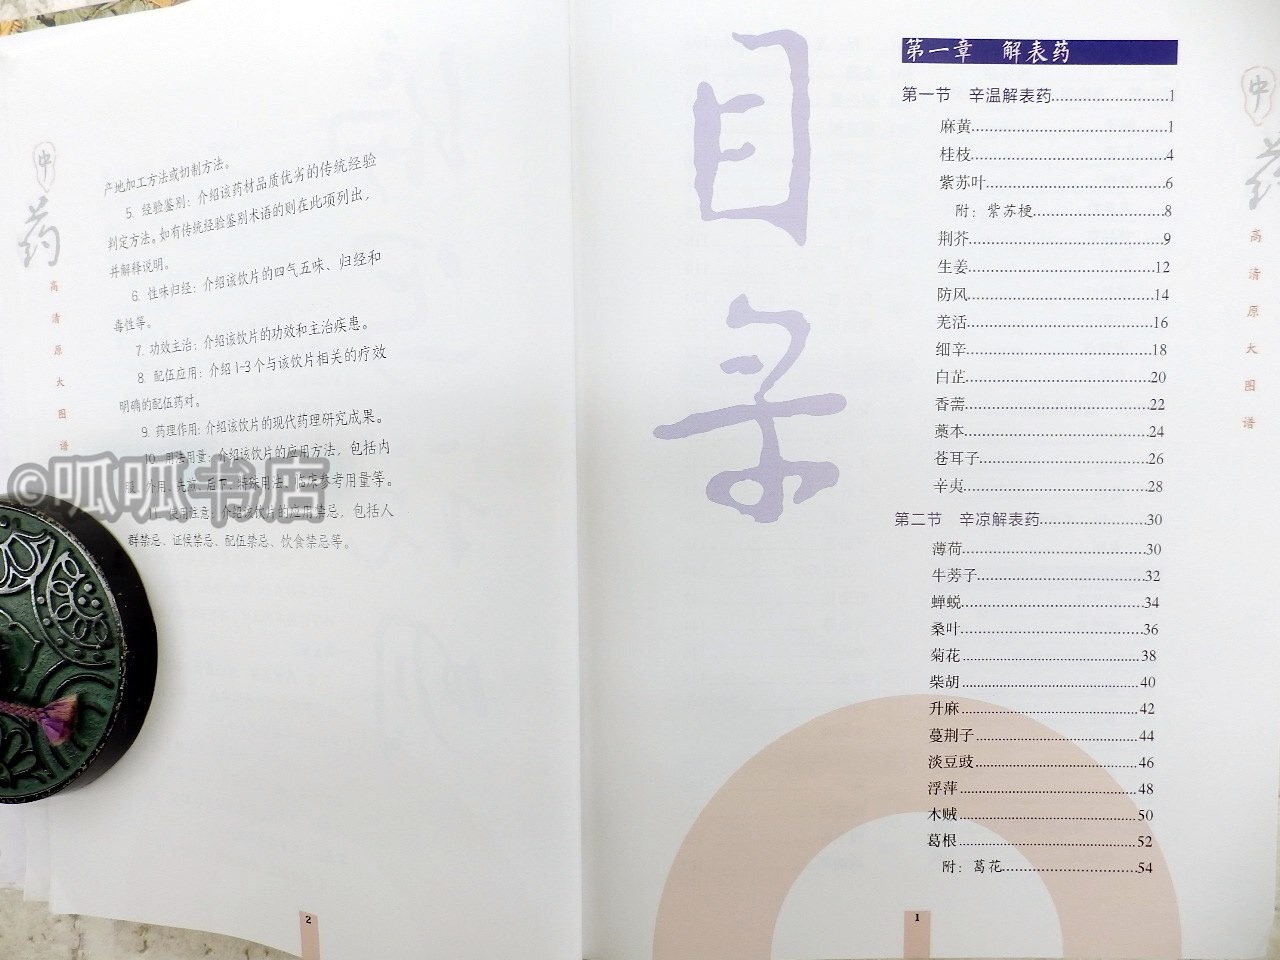 中药
高清原大图谱
产地加工方法或切制方法。
5. 经验鉴别：介绍该药材品质优劣的传统经验
判定方法。如有传统经验鉴别术语的则在此项列出，
并解释说明。
6. 性味归经：介绍该饮片的四气五味、归经和
毒性等。
7. 功效主治：介绍该饮片的功效和主治疾患。
8. 配伍应用：介绍1~3个与该饮片相关的疗效
明确的配伍药对。
9. 药理作用：介绍该饮片的现代药理研究成果。
10. 用法用量：介绍该饮片的应用方法，包括内
服、外用、先煎、后下、特殊用法、临床参考用量等。
11. 使用注意：介绍该饮片的应用禁忌，包括人
群禁忌、证候禁忌、配伍禁忌、饮食禁忌等。
©呱呱书店
2
目录
第一章 解表药
第一节 辛温解表药........................1
麻黄........................1
桂枝........................4
紫苏叶........................6
附：紫苏梗........................8
荆芥........................9
生姜........................12
防风........................14
羌活........................16
细辛........................18
白芷........................20
香薷........................22
藁本........................24
苍耳子........................26
辛夷........................28
第二节 辛凉解表药........................30
薄荷........................30
牛蒡子........................32
蝉蜕........................34
桑叶........................36
菊花........................38
柴胡........................40
升麻........................42
蔓荆子........................44
淡豆豉........................46
浮萍........................48
木贼........................50
葛根........................52
附：葛花........................54
1
中药
高清原大图谱